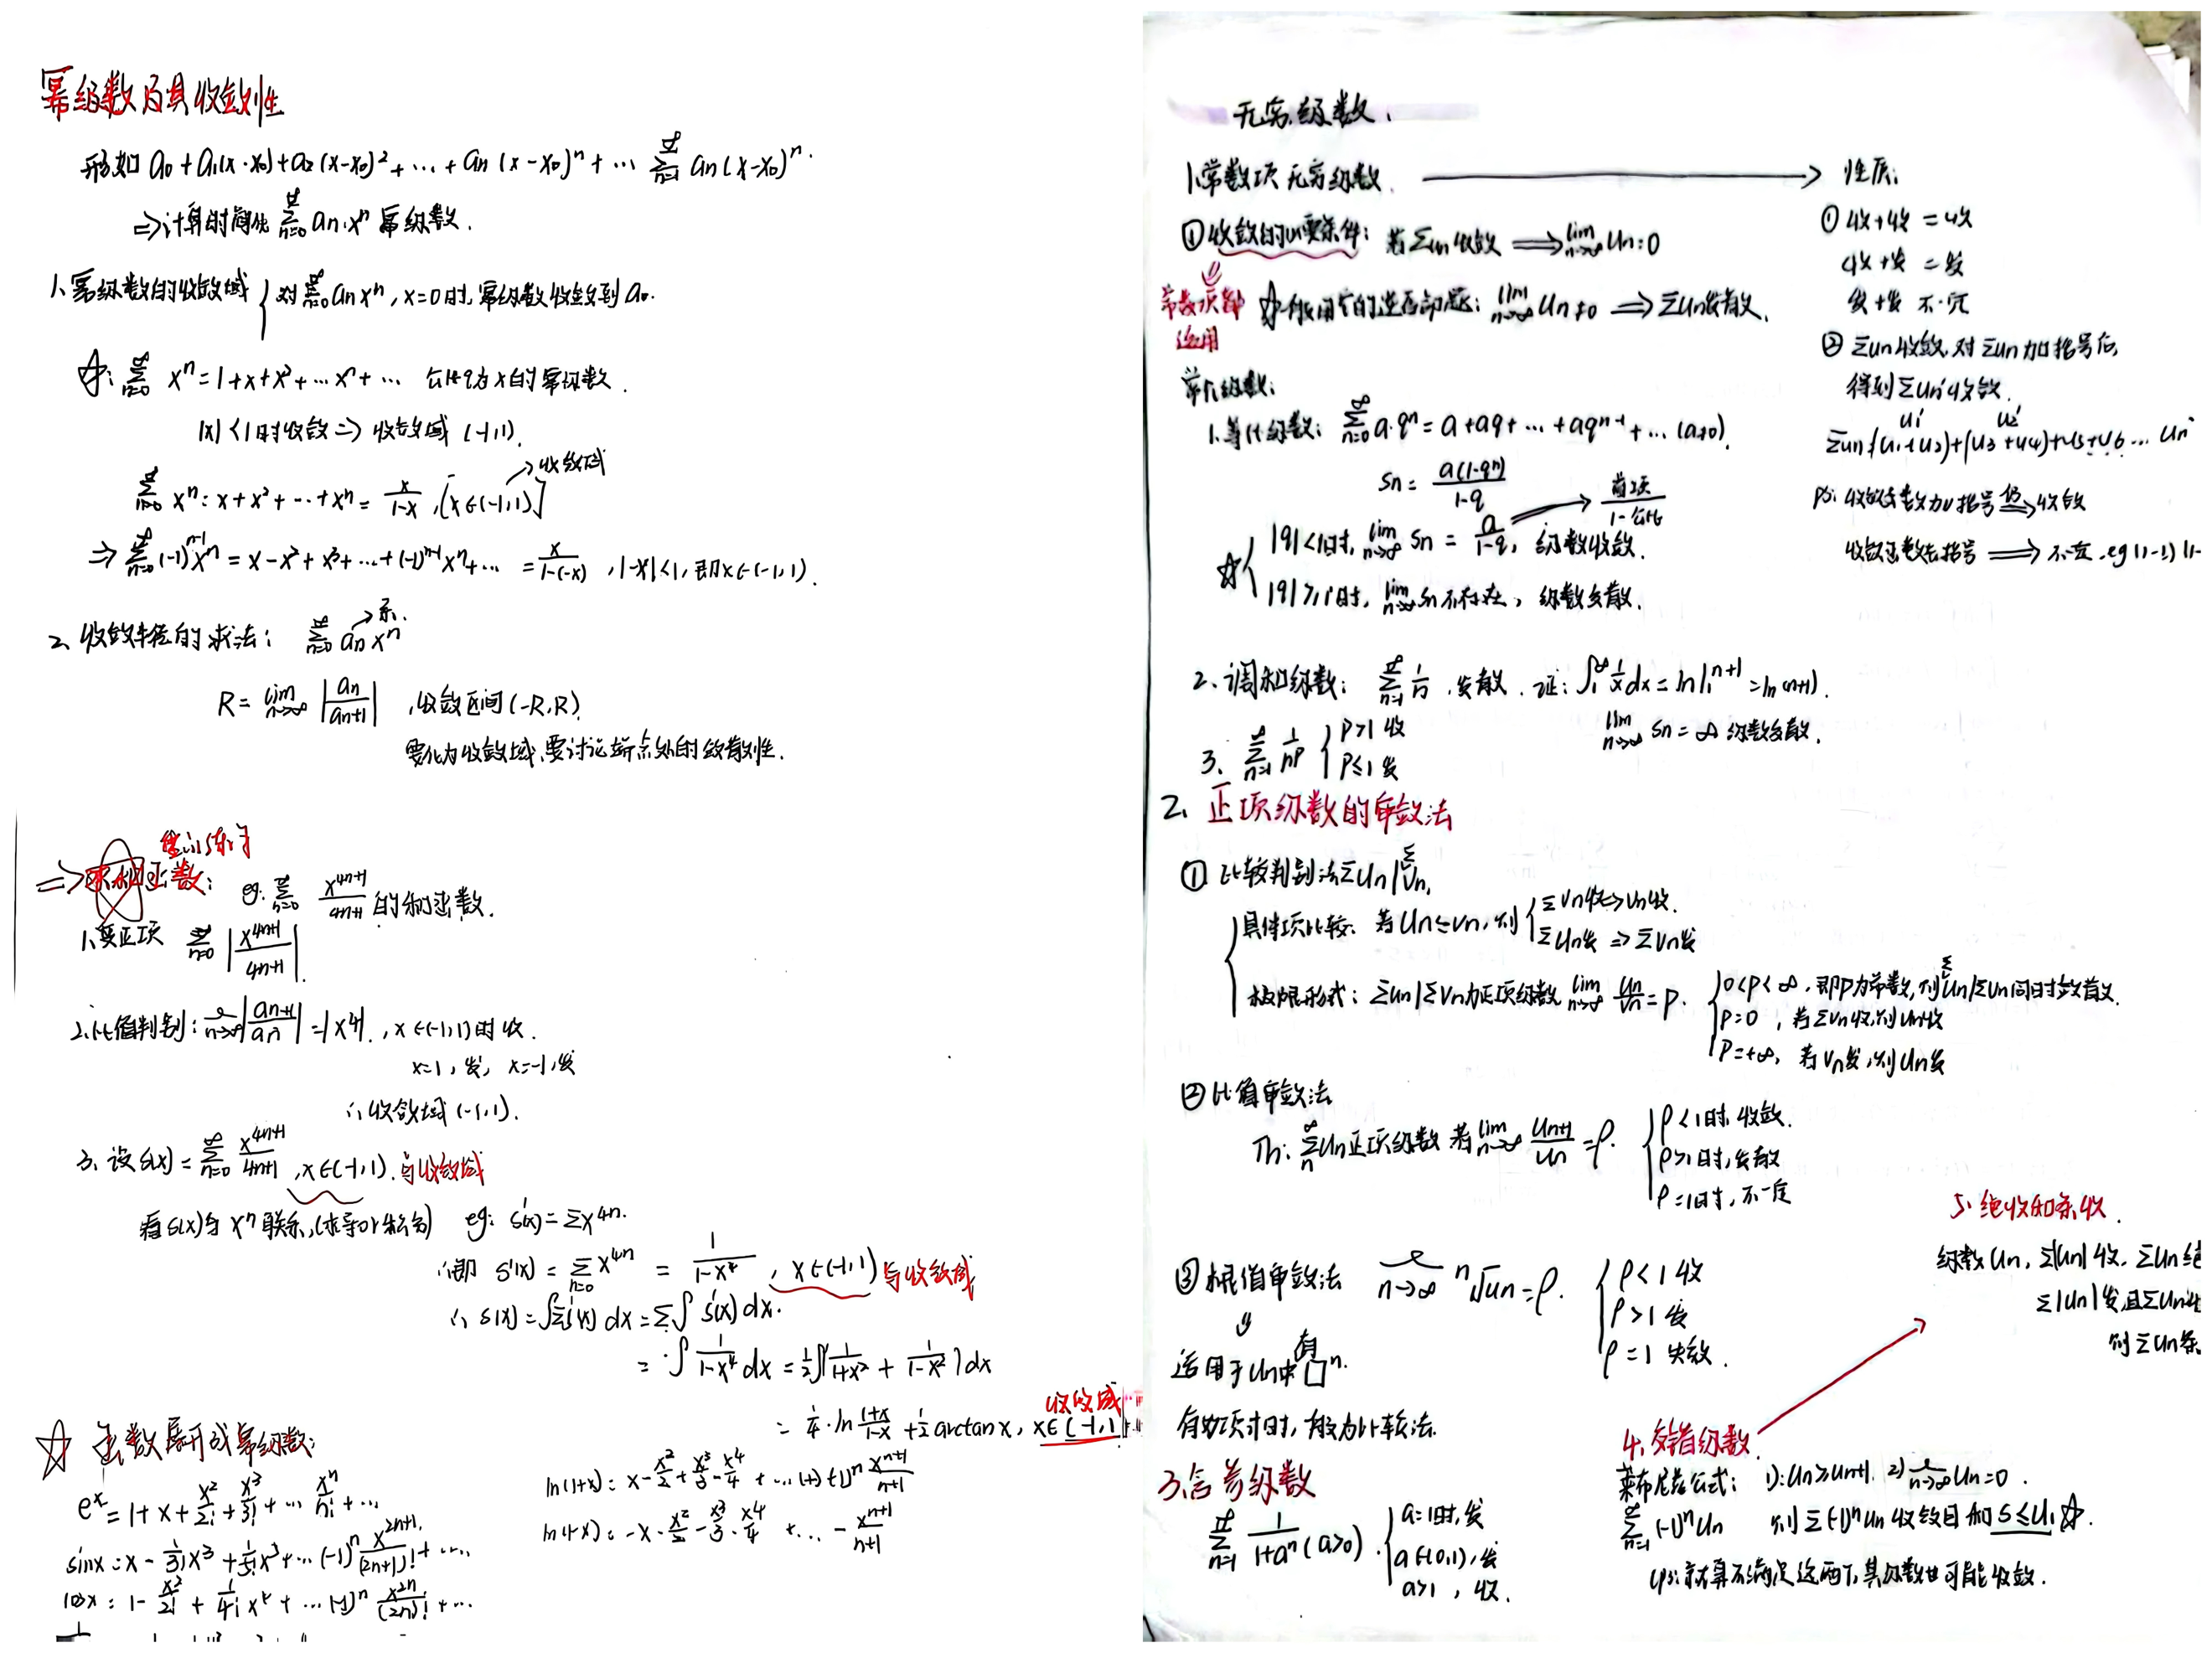 幂级数及其收敛性
形如 a₀+a₁(x·x₀)+a₂(x-x₀)²+…+an(x-x₀)ⁿ+… ∑_{n=1}^∞ an(x-x₀)ⁿ.
⇒计算时简化 ∑_{n=0}^∞ an·xⁿ 幂级数.
1、幂级数的收敛域 { 对∑_{n=0}^∞ anxⁿ, x=0时, 幂级数收敛到a₀.
☆: ∑_{n=0}^∞ xⁿ=1+x+x²+…xⁿ+… 公比q为x的幂级数.
|x|<1时收敛⇒收敛域 (-1,1).
∑_{n=0}^∞ xⁿ: x+x²+…+xⁿ= x/(1-x), [x∈(-1,1)] →收敛域
⇒ ∑_{n=0}^∞ (-1)^{n-1}xⁿ = x-x²+x³+…+(-1)^{n-1}xⁿ+… = x/(1-(-x)), |-x|<1, 即x∈(-1,1).
2、收敛半径的求法: ∑_{n=0}^∞ anxⁿ →系.
R= lim_{n→∞} |an/an+1| , 收敛区间(-R,R).
要化为收敛域,要讨论端点处的敛散性.
⇒求和函数: eg: ∑_{n=0}^∞ x^{4n+1}/(4n+1) 的和函数.
1、变正项 ∑_{n=0}^∞ |x^{4n+1}/(4n+1)|.
2、比值判别: n→∞ |an+1/an| =|x⁴|, x∈(-1,1)时收.
x=1,发, x=-1,发
∴收敛域(-1,1).
3、设s(x)= ∑_{n=0}^∞ x^{4n+1}/(4n+1), x∈(-1,1). 写收敛域
看s(x)与xⁿ联系,(求导or积分) eg: s'(x)=∑x^{4n}.
∴即 s'(x) = ∑_{n=0} x^{4n} = 1/(1-x⁴), x∈(-1,1) 写收敛域
∴ s(x)=∫∑s'(x) dx=∑∫ s'(x) dx.
= ∫ 1/(1-x⁴) dx = ½∫(1/(1+x²) + 1/(1-x²))dx
= ¼·ln (1+x)/(1-x) + ½ arctanx, x∈(-1,1) 收敛域
☆ 函数展开成幂级数:
eˣ=1+x+x²/2!+x³/3!+… xⁿ/n!+…
sinx=x-1/3! x³+1/5! x⁵+…(-1)ⁿ x^{2n+1}/(2n+1)!+…
cosx=1-x²/2!+1/4! x⁴+…(-1)ⁿ x^{2n}/(2n)!+…
ln(1+x)= x-x²/2+x³/3-x⁴/4+…(-1)ⁿ x^{n+1}/(n+1)
ln(1-x)= -x-x²/2-x³/3-x⁴/4+…-x^{n+1}/(n+1)
无穷级数.
1.常数项无穷级数. → 性质:
①收敛的必要条件: 若∑un收敛 ⇒ lim_{n→∞} Un=0
常数项都适用
☆一般用它的逆否命题: lim_{n→∞} Un≠0 ⇒ ∑Un发散.
常几级数:
1.等比级数: ∑_{n=0}^∞ a·qⁿ= a+aq+…+aq^{n-1}+…(a≠0).
Sn= a(1-qⁿ)/(1-q)
☆{ |q|<1时, lim_{n→∞} Sn = a/(1-q), 级数收敛. → 首项/(1-公比)
|q|≥1时, lim_{n→∞} Sn不存在, 级数发散.
2、调和级数: ∑_{n=1}^∞ 1/n, 发散. 证: ∫₁^∞ 1/x dx=ln|₁^{n+1}=ln(n+1).
lim_{n→∞} Sn=∞ 级数发散.
3、 ∑_{n=1}^∞ 1/n^p { p>1 收
p≤1 发
①收+收=收
收+发=发
发+发 不一定
②∑un收敛,对∑un加括号后,
得到∑un'收敛.
u₁' u₂'
∑un:(u₁+u₂)+(u₃+u₄)+u₅+u₆…Un
ps: 收敛级数加括号仍⇒收敛
收敛级数去括号⇒不一定.eg(1-1)(1-
2、正项级数的审敛法
①比较判别法∑Un/∑Vn,
{具体项比较: 若Un≤Vn,则{∑Vn收⇒Un收.
∑Un发⇒∑Vn发
极限形式: ∑un/∑Vn为正项级数 lim_{n→∞} Un/Vn=P. {0<P<∞,即P为常数,则∑Un/∑Vn同时敛散.
P=0, 若∑Vn收,则Un收
P=+∞, 若Vn发,则Un发
②比值审敛法
Th: ∑Un正项级数 若lim_{n→∞} Un+1/Un=ρ. {ρ<1时,收敛.
ρ>1时,发散
ρ=1时,不一定
③根值审敛法 n→∞ ⁿ√un=ρ. {ρ<1 收
ρ>1 发
ρ=1 失效.
适用于Un中有□ⁿ.
3.含参级数
∑_{n=1}^∞ 1/(1+aⁿ) (a>0). {a=1时,发
a∈(0,1),发
a>1, 收.
5、绝收和条收.
级数Un, ∑|Un|收, ∑Un绝
∑|Un|发,且∑Un收
则∑Un条
4、交错级数
莱布尼兹公式: 1):Un≥Un+1. 2) n→∞ Un=0.
∑_{n=1}^∞ (-1)ⁿUn 则∑(-1)ⁿUn收敛且和S≤U₁☆.
(ps:就算不满足这两个,其级数也可能收敛.